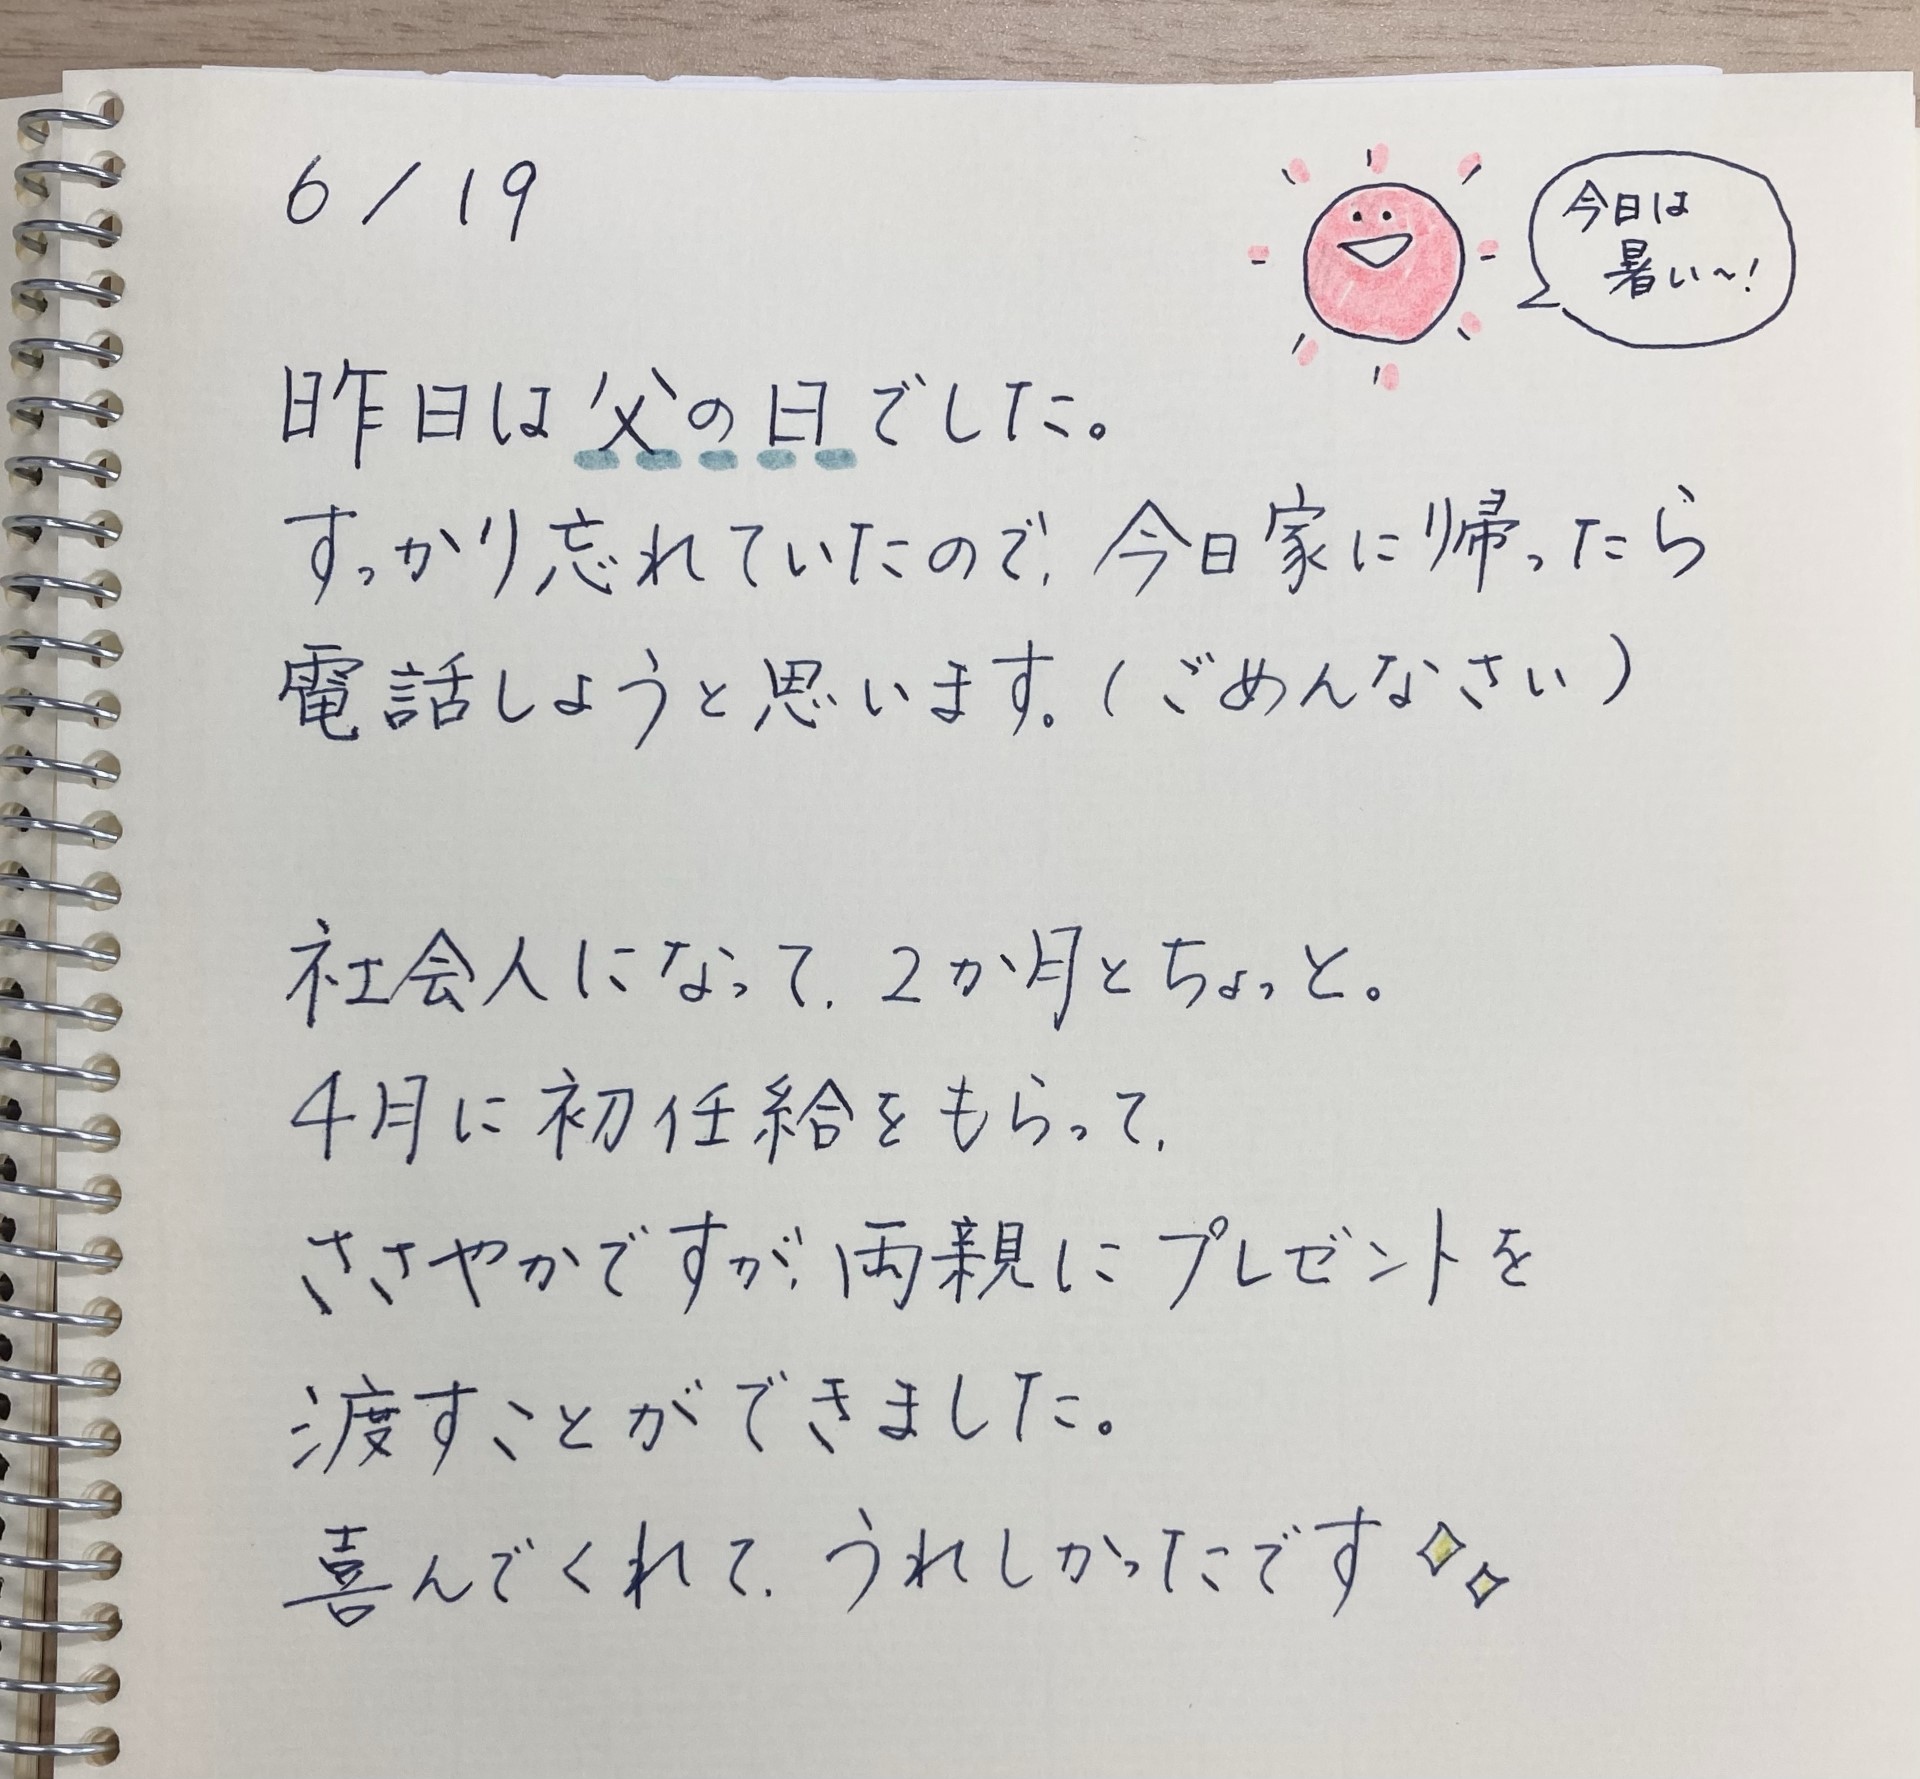 6/19
今日は
暑い~!
昨日は父の日でした。
すっかり忘れていたので、今日家に帰ったら
電話しようと思います。(ごめんなさい)
社会人になって、2か月とちょっと。
4月に初任給をもらって、
ささやかですが、両親にプレゼントを
渡すことができました。
喜んでくれて、うれしかったです